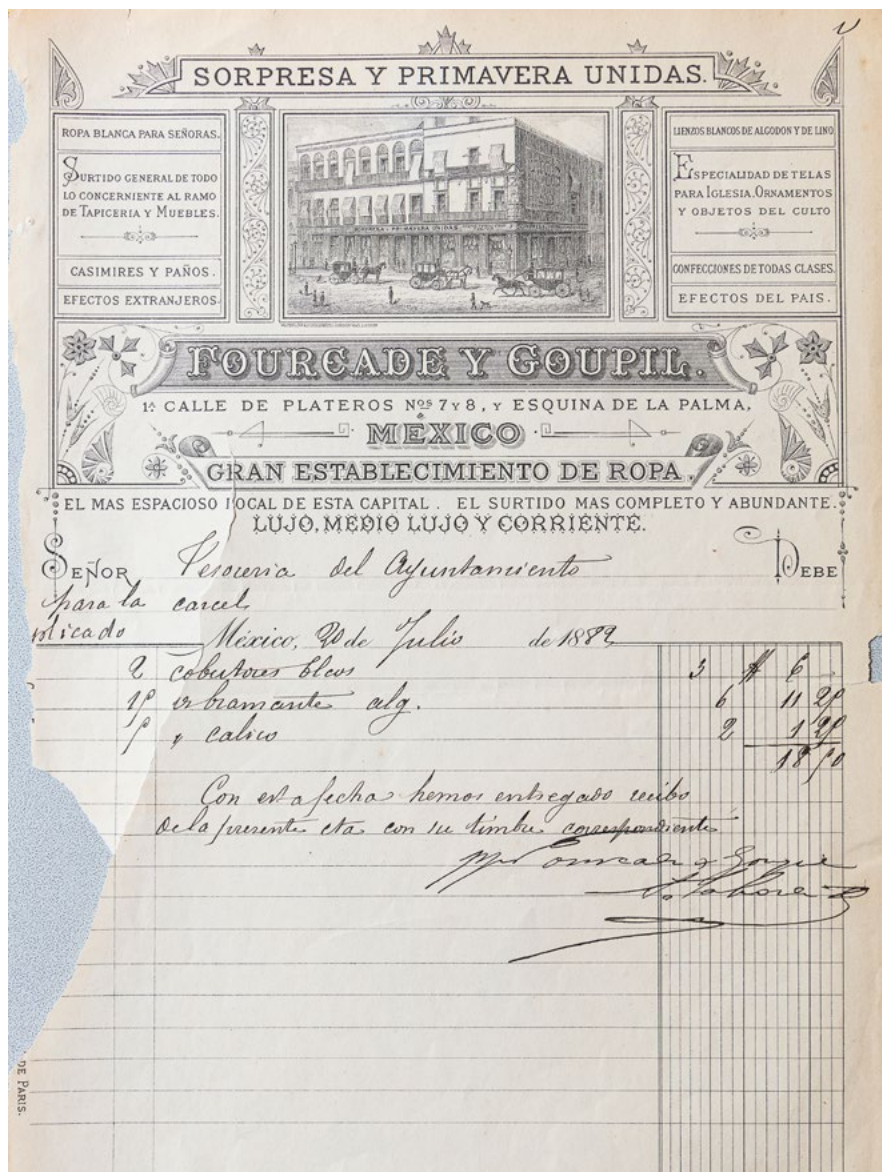 SORPRESA Y PRIMAVERA UNIDAS.
ROPA BLANCA PARA SEÑORAS.
SURTIDO GENERAL DE TODO
LO CONCERNIENTE AL RAMO
DE TAPICERIA Y MUEBLES.
CASIMIRES Y PAÑOS.
EFECTOS EXTRANJEROS.
SORPRESA Y PRIMAVERA UNIDAS
LIENZOS BLANCOS DE ALGODON Y DE LINO
ESPECIALIDAD DE TELAS
PARA IGLESIA. ORNAMENTOS
Y OBJETOS DEL CULTO
CONFECCIONES DE TODAS CLASES.
EFECTOS DEL PAIS.
FOURCADE Y GOUPIL.
1ª CALLE DE PLATEROS Nos 7 Y 8, Y ESQUINA DE LA PALMA,
MÉXICO
GRAN ESTABLECIMIENTO DE ROPA.
EL MAS ESPACIOSO LOCAL DE ESTA CAPITAL. EL SURTIDO MAS COMPLETO Y ABUNDANTE.
LUJO, MEDIO LUJO Y CORRIENTE.
SEÑOR Tesoreria del Ayuntamiento DEBE
para la carcel
plicado
México, 20 de Julio de 1882
2 cobertores blcos 3 $ 6
15 bramante alg. 6 11 25
5 " calico 2 1 25
18 50
Con esta fecha hemos entregado recibo
de la presente cta con su timbre correspondiente
pp Fourcade y Goupil
DE PARIS.